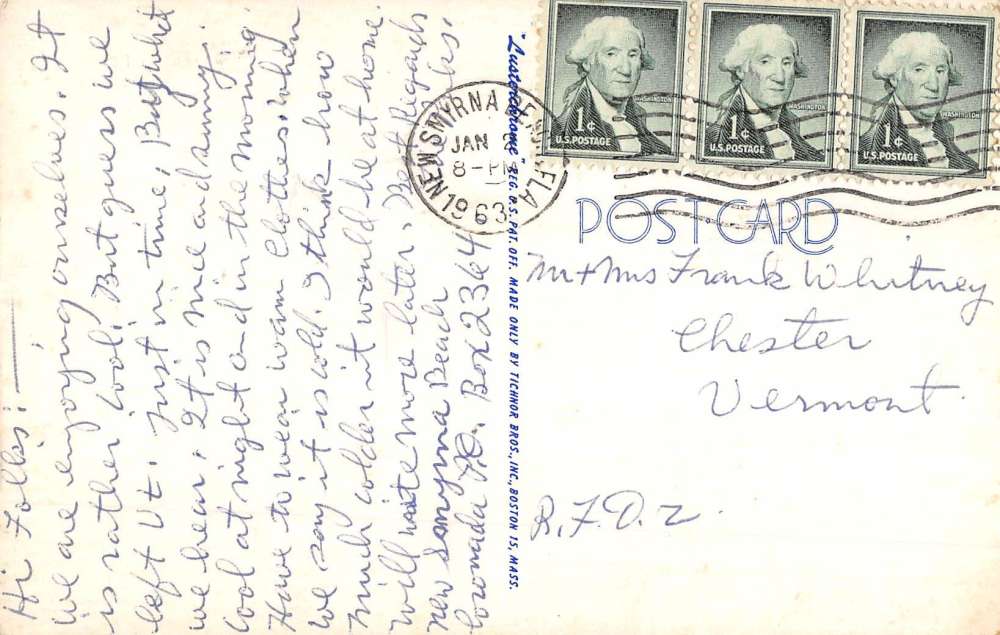 Hi Folks:—
We are enjoying ourselves. It
is rather cool. But guess we
left Vt. just in time, By what
we hear. It is nice and sunny.
cool at night and in the morning.
Have to wear warm clothes. When
we say it is cold. I think how
much colder it would be at home.
Will write more later. Best Regards
New Smyrna Beach
P.O. Box 2364
"Lusterchrome" REG. U.S. PAT. OFF. MADE ONLY BY TICHNOR BROS., INC., BOSTON 15, MASS.
NEW SMYRNA BEACH FLA
JAN
8-PM
1963
WASHINGTON
1¢
U.S. POSTAGE
WASHINGTON
1¢
U.S. POSTAGE
WASHINGTON
1¢
U.S. POSTAGE
POST CARD
Mr + Mrs Frank Whitney
Chester
Vermont.
R.F.D. 2